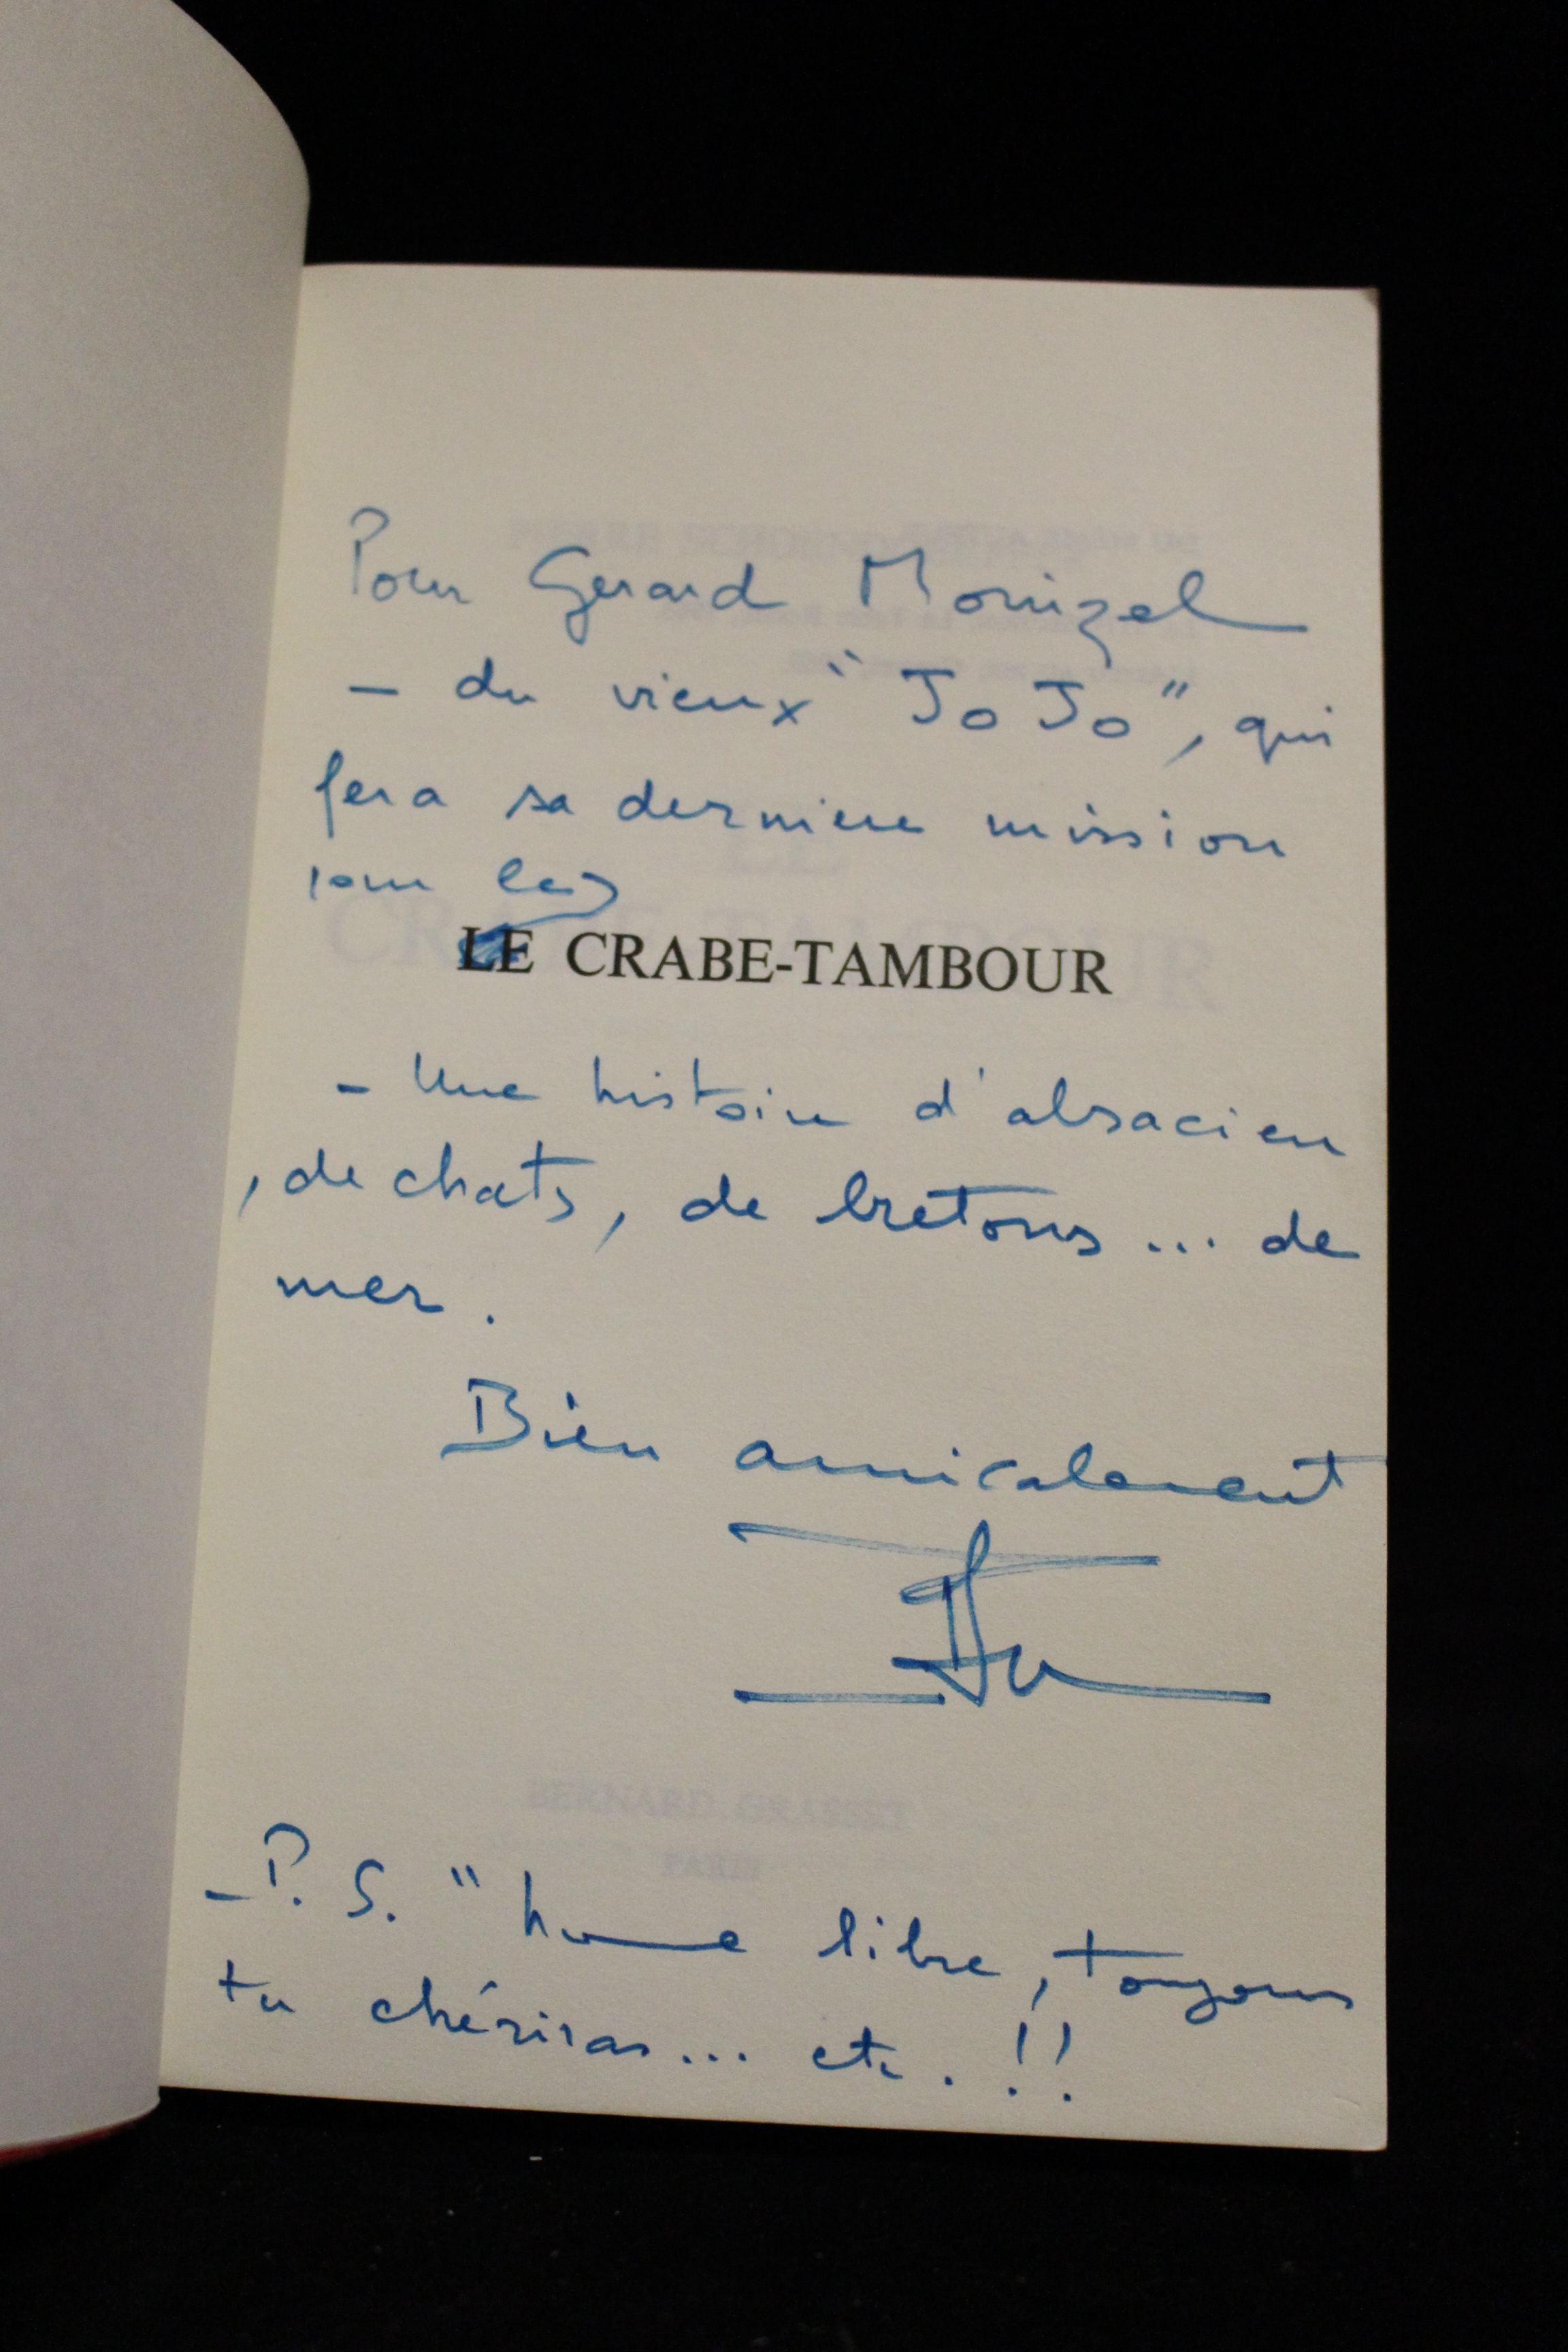 Pour Gerard
- du vieux "JoJo", qui
fera sa derniere mission
pour les
LE CRABE-TAMBOUR
- Une histoire d'alsacien
, de chats, de bretons ... de
mer .
Bien amicalement
BERNARD GRASSET
PARIS
- P. S. " homme libre, toujours
tu chériras ... etc . !!